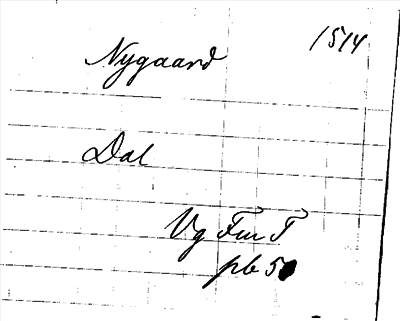 Nygaard 1514
Dal
Vg Fur T
pb 50